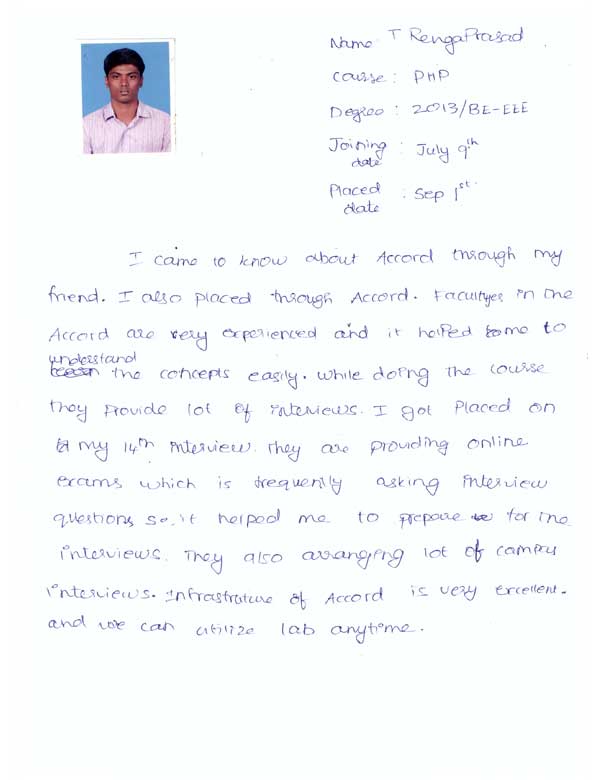 Name: T RengaPrasad
Course: PHP
Degree: 2013/BE-EEE
Joining date : July 9th
Placed date : Sep 1st.
I came to know about Accord through my
friend. I also placed through Accord. Facultyes in the
Accord are very experienced and it helped to me to
understand
the concepts easily. While doing the course
they provide lot of interviews. I got placed on
my 14th interview. They are providing online
exams which is frequently asking interview
questions so, it helped me to prepare for the
interviews. They also arranging lot of campus
interviews. Infrastrature of Accord is very excellent.
and we can utilize lab anytime.